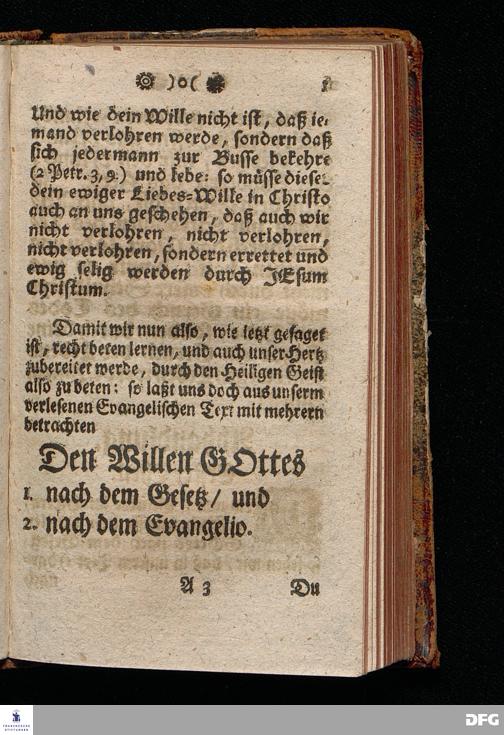 )o(
Und wie dein Wille nicht ist, daß ie-
mand verlohren werde, sondern daß
sich jedermann zur Busse bekehre
(2 Petr. 3, 9.) und lebe: so müsse dieser
dein ewiger Liebes-Wille in Christo
auch an uns geschehen, daß auch wir
nicht verlohren, nicht verlohren,
nicht verlohren, sondern errettet und
ewig selig werden durch JEsum
Christum.
Damit wir nun also, wie ietzt gesaget
ist, recht beten lernen, und auch unser Hertz
zubereitet werde, durch den Heiligen Geist
also zu beten: so laßt uns doch aus unserm
verlesenen Evangelischen Text mit mehrern
betrachten
Den Willen GOttes
1. nach dem Gesetz/ und
2. nach dem Evangelio.
A 3 Du
FRANCKESCHE
STIFTUNGEN
DFG